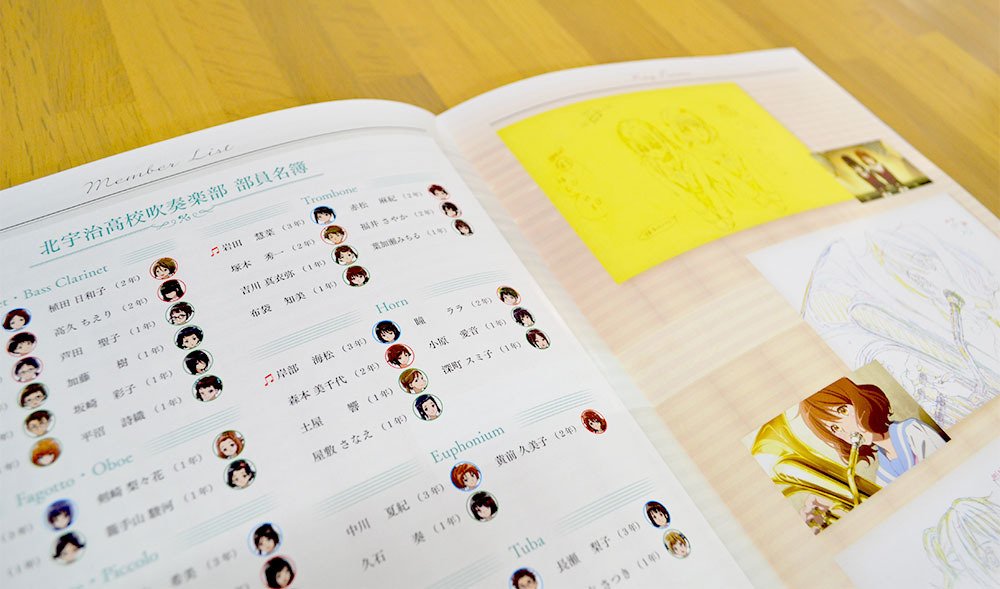 Member List
北宇治高校吹奏楽部 部員名簿
Bass Clarinet
植田 日和子(2年)
高久 ちえり(2年)
芦田 聖子(1年)
加藤 樹(1年)
坂崎 彩子(1年)
平沼 詩織(1年)
Fagotto・Oboe
剣崎 梨々花(1年)
籠手山 駿河(1年)
Piccolo
希美(3年)
Trombone
岩田 慧菜(3年)
赤松 麻紀(2年)
塚本 秀一(2年)
福井 さやか(2年)
吉川 真衣弥(1年)
葉加瀬みちる(1年)
布袋 知美(1年)
Horn
岸部 海松(3年)
瞳 ララ(2年)
森本 美千代(2年)
小原 愛音(1年)
土屋 響(1年)
深町 スミ子(1年)
屋敷 さなえ(1年)
Euphonium
中川 夏紀(3年)
黄前 久美子(2年)
久石 奏(1年)
Tuba
長瀬 梨子(3年)
さつき(1年)